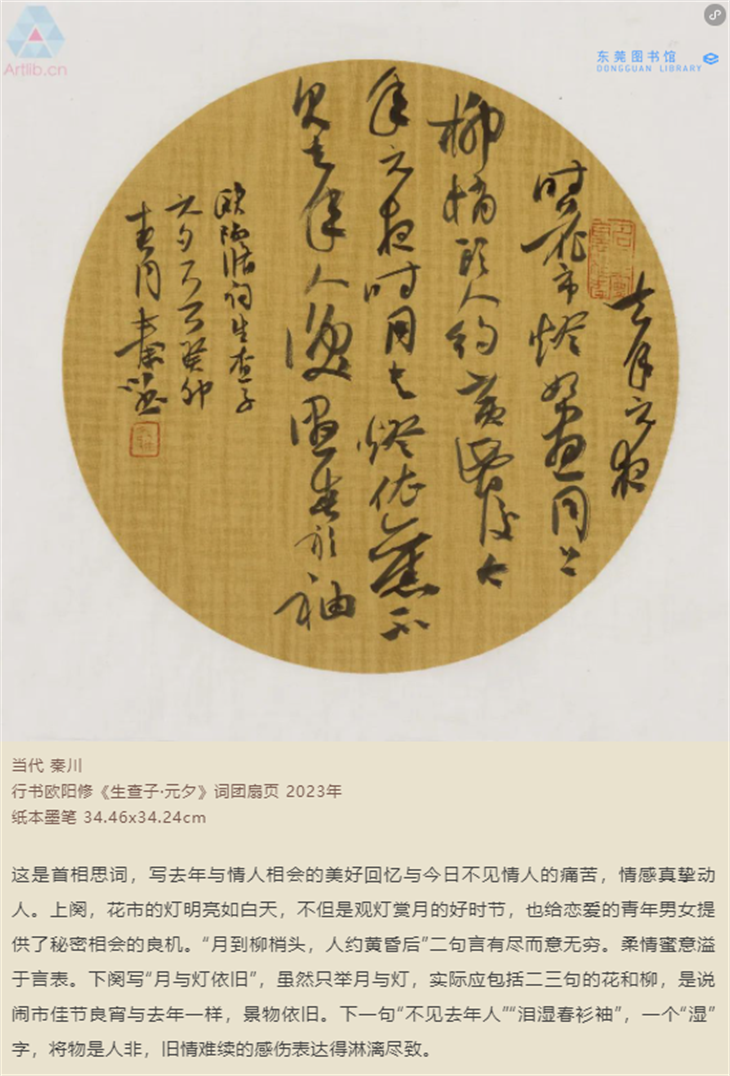 Artlib.cn
东莞图书馆
DONGGUAN LIBRARY
去年元夜
時花市燈如晝月上
柳梢頭人約黃昏後今
年元夜時月與燈依舊不
見去年人淚濕春衫袖
歐陽修詞生查子
元夕 癸卯
春月秦川
当代 秦川
行书欧阳修《生查子·元夕》词团扇页 2023年
纸本墨笔 34.46x34.24cm
这是首相思词，写去年与情人相会的美好回忆与今日不见情人的痛苦，情感真挚动
人。上阕，花市的灯明亮如白天，不但是观灯赏月的好时节，也给恋爱的青年男女提
供了秘密相会的良机。“月到柳梢头，人约黄昏后”二句言有尽而意无穷。柔情蜜意溢
于言表。下阕写“月与灯依旧”，虽然只举月与灯，实际应包括二三句的花和柳，是说
闹市佳节良宵与去年一样，景物依旧。下一句“不见去年人”“泪湿春衫袖”，一个“湿”
字，将物是人非，旧情难续的感伤表达得淋漓尽致。